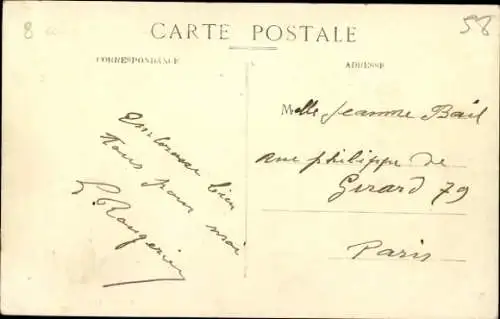 8
58
CARTE POSTALE
CORRESPONDANCE
ADRESSE
Embrasse bien
tous pour moi
Melle Jeanne Bail
rue philippe de
Girard 79
Paris